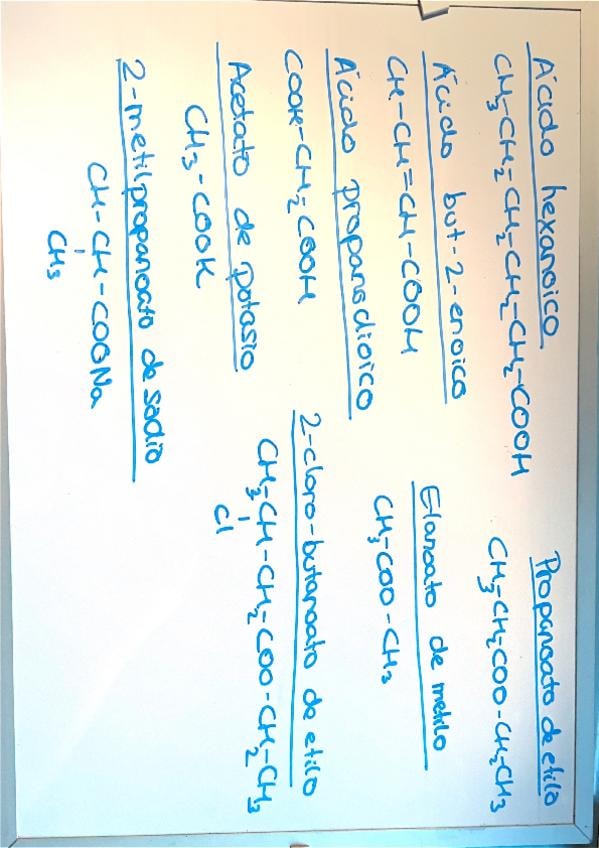 Ácido hexanoico
CH3-CH2-CH2-CH2-CH2-COOH
Ácido but-2-enoico
CH-CH=CH-COOH
Ácido propanodioico
COOH-CH2-COOH
Acetato de potasio
CH3-COOK
2-metilpropanoato de sodio
CH-CH-COONa
CH3
Propanoato de etilo
CH3-CH2-COO-CH2-CH3
Etanoato de metilo
CH3-COO-CH3
2-cloro-butanoato de etilo
CH3-CH-CH2-COO-CH2-CH3
Cl